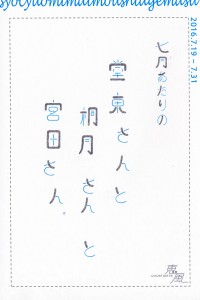 syocyuomimaimoushiagemasu
2016.7.19 – 7.31
七月あたりの
堂東さんと
桐月さんと
宮田さん。
恵風